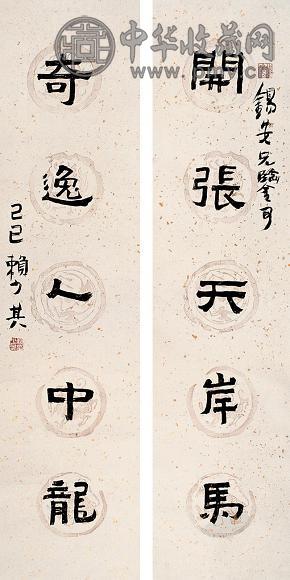 中华收藏网
錫安兄
開張天岸馬
奇逸人中龍
己巳賴少其